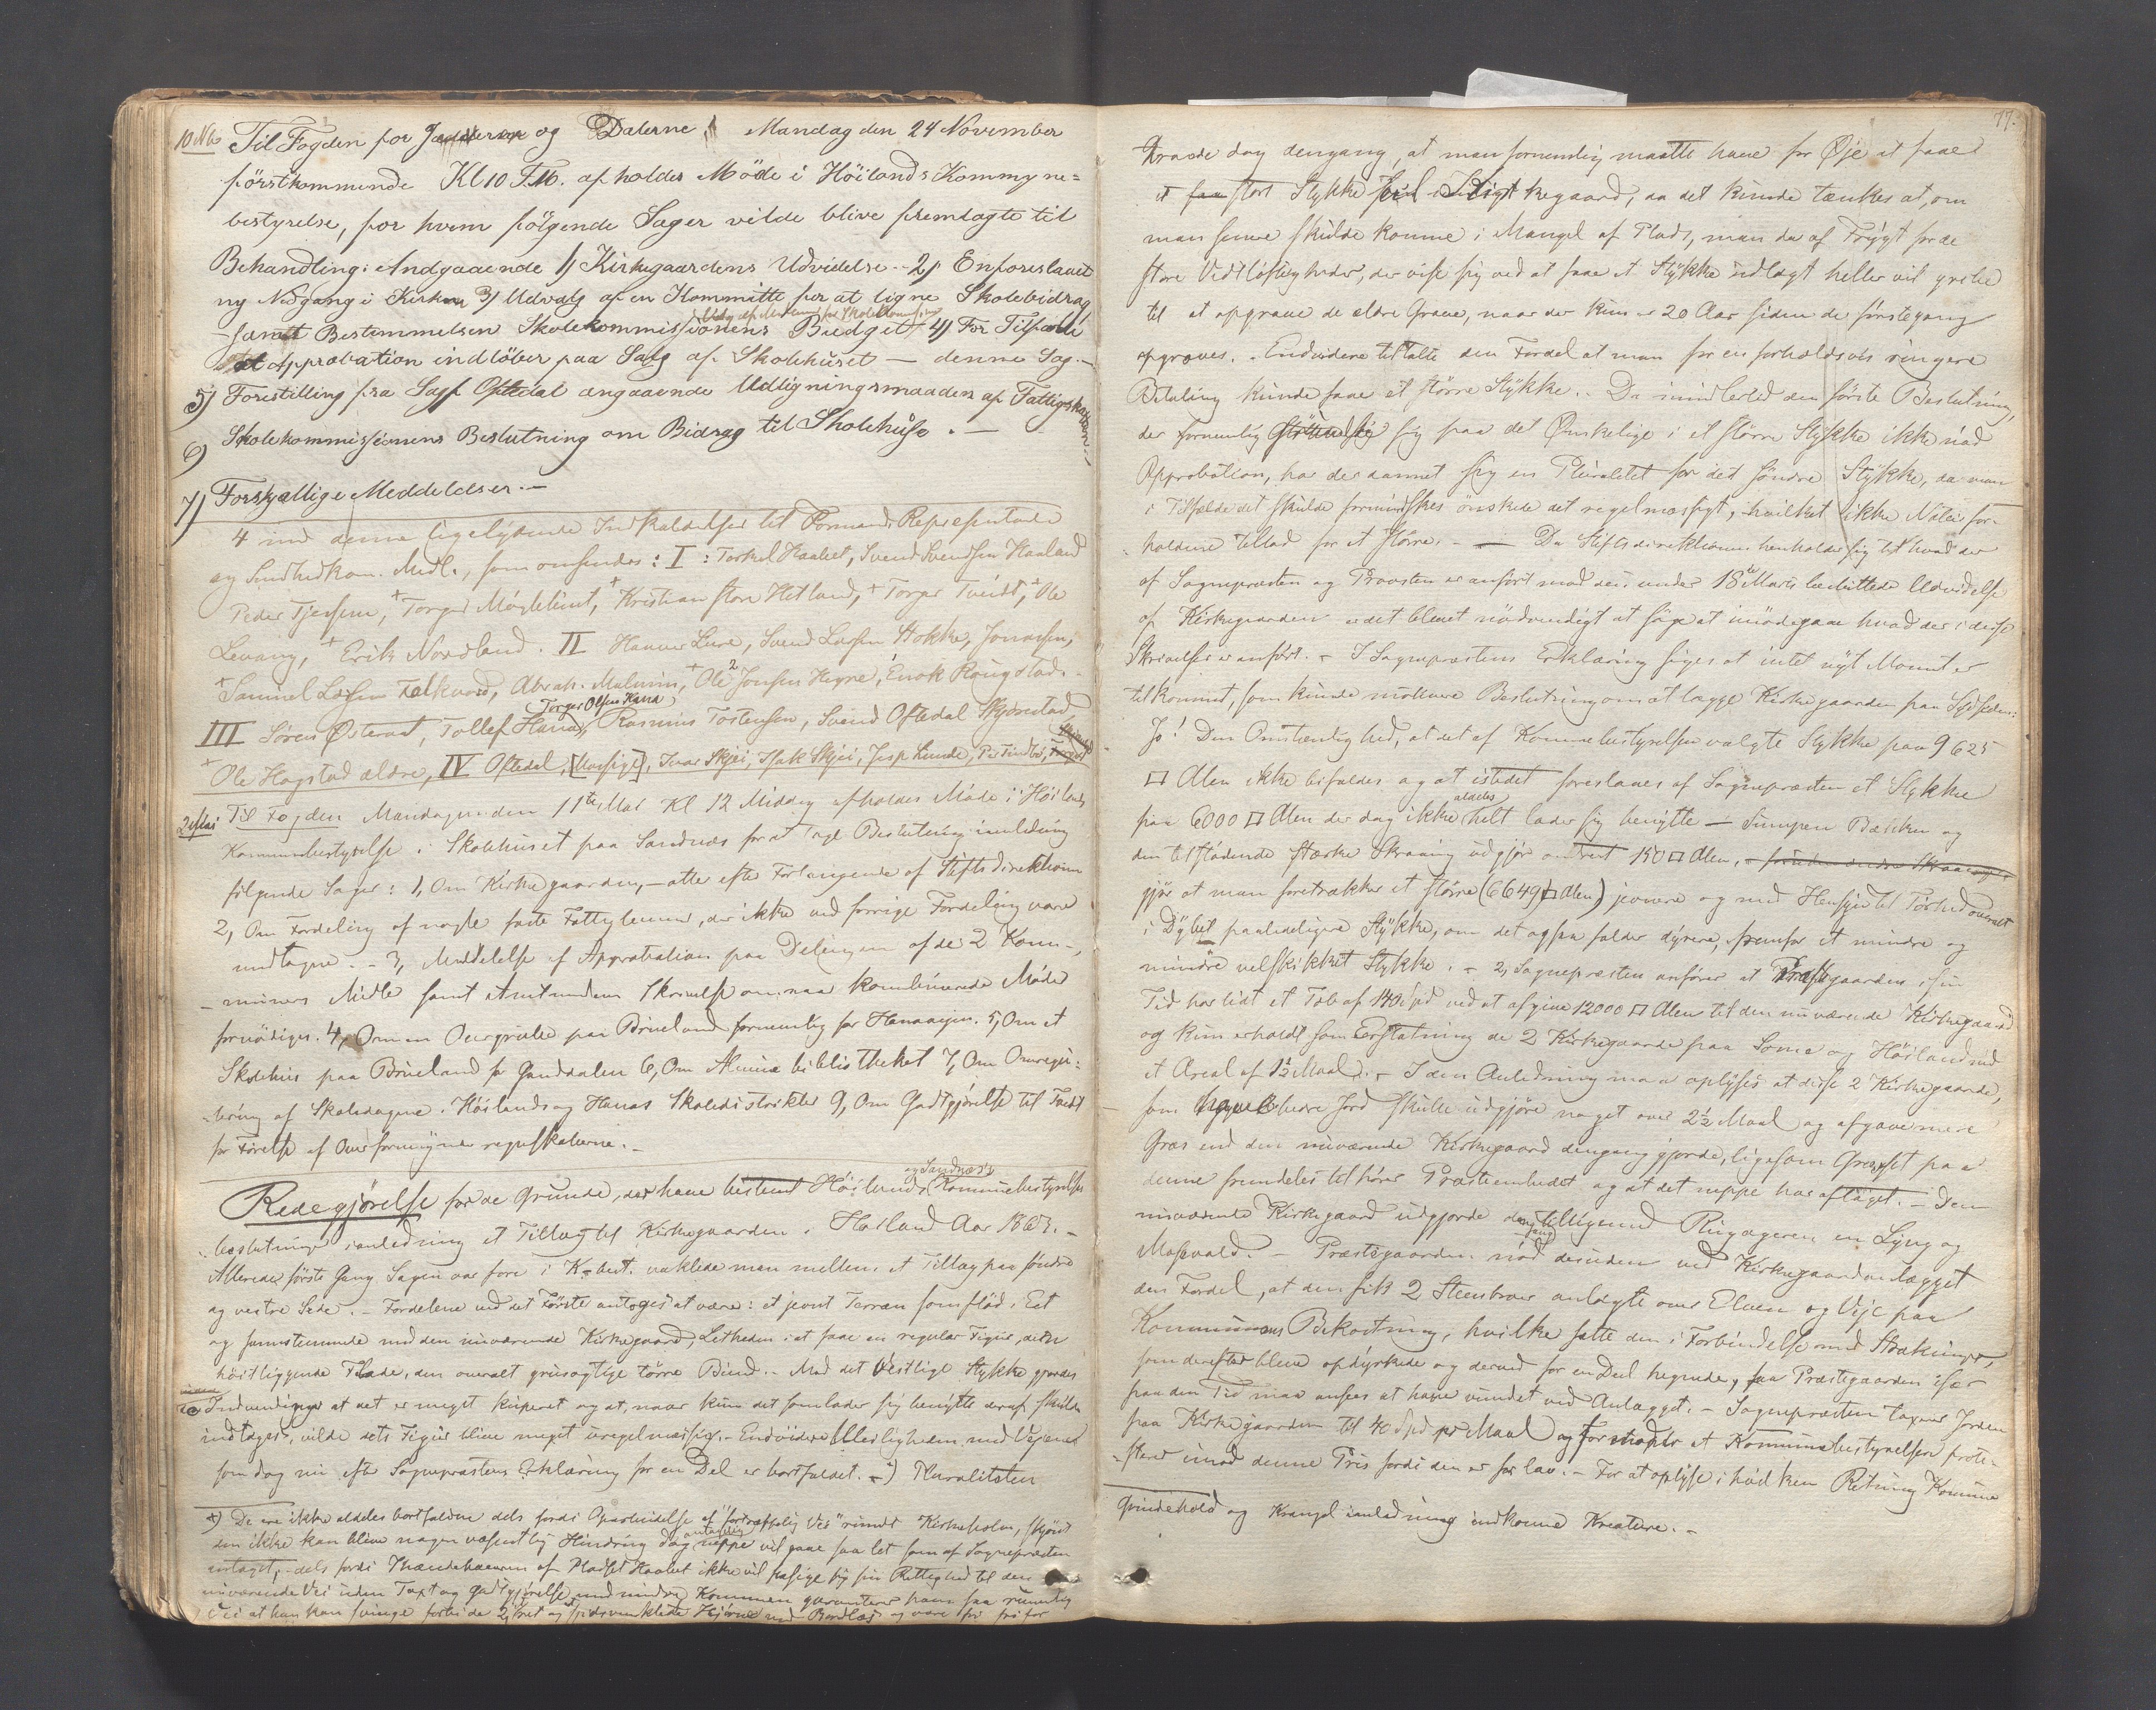 10 Nbr Til Fogden for Jædderen og Dalerne Mandag den 24 November
förstkommende Kl 10 F.M. afholdes Möde i Höilands Kommune=
bestyrelse, for hvem fölgende Sager vilde blive fremlagte til
Behandling: Andgaaende 1) Kirkegaardens Udvidelse - 2) En foreslaaet
ny Nedgang i Kirken 3) Udvalg af en Kommitte for at ligne Skolebidrag
samt Bestemmelsen Skolekommissionens Budget 4) For Tilfælde
at Approbation indlöber paa Salg af Skolehuset — denne Sag.—
5) Forestilling fra Sagf. Oftedal angaaende Udligningsmaaden af Fattigskatten
6) Skolekommissionens Beslutning om Bidrag til Skolehuse. —
7) Forskjællige Meddelelser.—
4 med denne ligelydende Indkaldelser til Formænd, Repræsentante
og Sundhedkom. Medl., som omsendes: I: Torkel Haabet, Svend Svendsen Haaland
Peder Tjessem, Torger Møglebust, Kristian store Hetland, Torger Tveidt, Ole
Levang, Erik Nordland. II Hanner Lure, Svend Larsen Stokke, Jonassen,
Samuel Larsen Folkvord, Abrah. Malmin, Ole Jonsen Hegne, Enok Rougstad.
Torger Olsen Hana
III Sören Østeraat, Tollef Hana, Rasmus Tostensen, Svend Oftedal Skjørestad
Ole Hogstad ældre, IV Oftedal, Ivar Skjæi, Isak Skjei, Jesp Lunde,
2 Mai Til Fogden Mandagen den 11te Mai Kl 12 Middag afholdes Møde i Höilands
Kommunebestyrelse i Skolehuset paa Sandnæs for at tage Beslutning i anledning
følgende Sager: 1, Om Kirkegaarden, — atter efter Forlangende af Stiftsdirektionen
2, Om Fordeling af nogle faste Fattiglemmer, der ikke ved forrige Fordeling vare
medtagne. — 3, Meddelelse af Approbation paa Delingen af de 2 Kom-
muners Midler samt Amtmandens Skrivelse om naar kombinerede Møder
fornödiges. 4, Om en paa Brueland fornemlig for Hanaaijen. 5, Om et
Skolehus paa Brueland for Ganddalen 6, Om Almuebibliotheket 7, Om Omregu-
lering af Skoledagene i Höilands og Hanas Skoledistrikter 9, Om Godtgjörelse til Tveidt
for Förelse af Overformynderregnskaberne.—
og Sandnæs's
Redegjørelse for de Grunde, der have bestemt Höilands Kommunebestyrelses
beslutninger i anledning et Tillæg til Kirkegaarden i Høiland Aar 1863.—
Allerede første Gang Sagen var fore i K-best. vaklede man mellem et Tillæg paa søndre
og vestre Side. — Fordelene ved det Første antoges at være: et jevnt Terræn som stöd i Eet
og samstemmede med den nuværende Kirkegaard, Letheden i at faae en regulær Figur, dets
höitliggende Flade, den overalt grusagtige tørre Bund. — Mod det Vestlige Stykke gjordes
Indvendinger at det er meget kuperet og at, naar kun det som lader sig benytte deraf skulde
indtages, vilde dets Figur blive meget uregelmæssig. — Endvidere Uleiligheden med Vejene
som dog nu efter Sognepræstens Erklæring for en Del er bortfaldet. — *) Pluraliteten
*) De ere ikke aldeles bortfaldne dels fordi Oparbeidelse af "fortræffelig Vei" rundt Kirkeholm, skjönt
den ikke kan blive nogen væsentlig Hindring dog neppe vil gaae saa let som af Sognepræsten
antaget, — dels fordi Ihændehaveren af Pladset Haabet ikke vil frasige sig sin Rettighed til den
nuværende Vei uden Taxt og Godtgjørelse medmindre Kommunen garanterer ham saa rummelig
Vei at han kan svinge forbi de 2 spidsvinklede Hjörner med Bordlæs og være fri for
77.
troede dog dengang, at man fornemlig maatte have for Øje at faae
et stort Stykke til Kirkegaard, da det kunde tænkes at, om
man senere skulde komme i Mangel af Plads, man da af Frygt for de
store Vidtløftigheder, der vise sig ved at faae et Stykke udlagt heller vil gribe
til at opgrave de ældre Grave, naar der kun er 20 Aar siden de førstegang
opgroves. — Endvidere tiltalte den Fordel at man for en forholdsvis ringere
Betaling kunde faae et større Stykke. — Da imidlertid den første Beslutning,
der fornemlig støttede sig paa det Ønskelige i et større Stykke ikke nød
Approbation, har der dannet sig en Pluralitet for det søndre Stykke, da man
i Tilfælde det skulde formindskes ønskede det regelmæssigt, hvilket ikke Natur for-
holdene tillod for et større. — — Da Stiftsdirektionen henholder sig til hvad der
af Sognepræsten og Provsten er anført mod den under 18de Marts besluttede Udvidelse
af Kirkegaarden er det blevet nödvendigt at søge at imødegaae hvad der i disse
Skrivelser er anført. — I Sognepræstens Erklæring siges at intet nyt Moment er
tilkommet, som kunde motivere Beslutningen om at lægge Kirkegaarden paa Sydsiden:
Jo! Den Omstændighed, at det af Kommunebestyrelsen valgte Stykke paa 9625
□ Alen ikke bifaldes og at istedet foreslaaes af Sognepræsten et Stykke
aldeles
paa 6000 □ Alen der dog ikke helt lader sig benytte — Sumpen Bækken og
den tilstødende stærke Skraaning udgjör omtrent 150 □ Alen,
gjør at man foretrækker et større (6649 □ Alen) jevnere og med Hensyn til Tørhed overalt
i Dybet paalideligere Stykke, om det ogsaa falder dyrere, fremfor et mindre og
mindre velskikket Stykke. — 2, Sognepræsten anfører at Præstegaarden i sin
Tid har lidt et Tab af 140 Spd ved at afgive 12000 □ Alen til den nuværende Kirkegaard
og kun erholdt som Erstatning de 2 Kirkegaarde paa Soma og Höiland med
et Areal af 1½ Maal. — I den Anledning maa oplyses at disse 2 Kirkegaarde,
som havde bedre Jord skulle udgjøre noget over 2½ Maal og afgave mere
Græs end den nuværende Kirkegaard dengang gjorde, ligesom Græsset paa
denne fremdeles tilhører Præsteembedet og at det neppe har aftaget. — Den
nuværende Kirkegaard udgjorde dengang tilligemed Ringageren en Lyng og
Mosevold. — Præstegaarden nød desuden ved Kirkegaardanlægget
den Fordel, at den fik 2 Steenbroer anlagte over Elven og Veje paa
Kommunens Bekostning, hvilke satte den i Forbindelse med Strækninger,
som derefter bleve opdyrkede og derved for en Deel hegnede, saa Præstegaarden især
paa den Tid maa ansees at have vundet ved Anlægget. — Sognepræsten taxerer Jorden
paa Kirkegaarden til 40 Spd pr Maal og formoder at Kommunebestyrelsen prote-
sterer imod denne Pris fordi den er for lav. — For at oplyse i hvilken Retning Kommune
Grindehold og Krangel i anledning indkomne Kreature. —